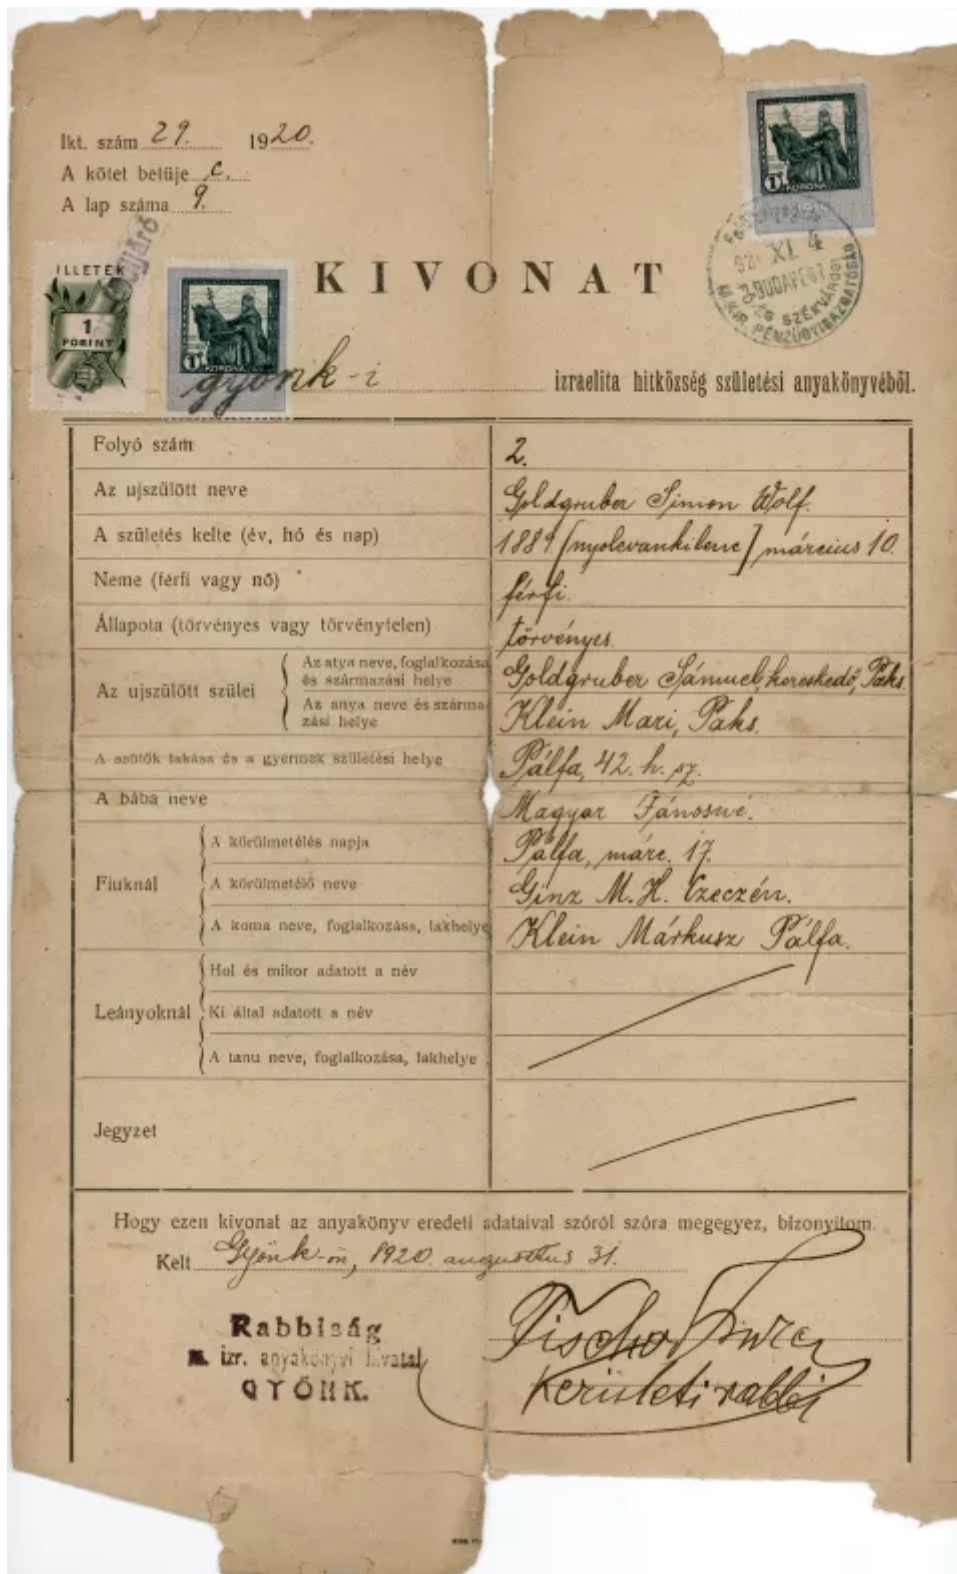 Ikt. szám 29. 1920.
A kötet betüje C.
A lap száma 9.
ILLETÉK
1
FORINT
1 KORONA
1 KORONA
XI 4
BUDAPEST
ÉS SZÉKVÁROSI
M. KIR. PÉNZÜGYIGAZGATÓSÁG
KIVONAT
gyönk-i izraelita hitközség születési anyakönyvéből.
Folyó szám 2.
Az ujszülött neve Goldgruber Simon Wolf.
A születés kelte (év, hó és nap) 1889 [nyolcvankilenc] március 10.
Neme (férfi vagy nő) férfi.
Állapota (törvényes vagy törvénytelen) törvényes.
Az ujszülött szülei
Az atya neve, foglalkozása és származási helye Goldgruber Sámuel, kereskedő, Paks.
Az anya neve és származási helye Klein Mari, Paks.
A szülők lakása és a gyermek születési helye Pálfa, 42. h. sz.
A bába neve Magyar Jánosné.
Fiuknál
A körülmetélés napja Pálfa, márc. 17.
A körülmetélő neve Ginz M. H. Czeczén.
A koma neve, foglalkozása, lakhelye Klein Márkusz Pálfa.
Leányoknál
Hol és mikor adatott a név
Ki által adatott a név
A tanu neve, foglalkozása, lakhelye
Jegyzet
Hogy ezen kivonat az anyakönyv eredeti adataival szóról szóra megegyez, bizonyitom.
Kelt Gyönk-ön, 1920. augusztus 31.
Rabbiság
m. izr. anyakönyvi hivatal
GYÖNK.
kerületi rabbi